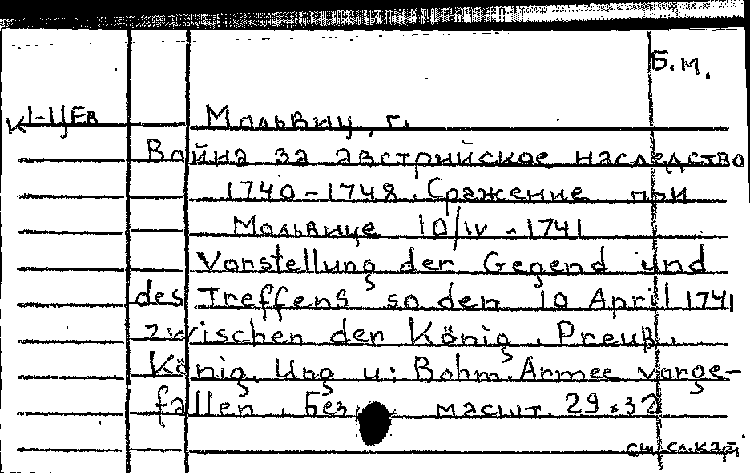 Б.М.
К1-ЦЕв
Мольвиц, г.
Война за австрийское наследство
1740-1748. Сражение при
Мольвице 10/IV - 1741
Vorstellung der Gegend und
des Treffens so den 10 April 1741
zwischen den König. Preuß.
König. Ung u: Bohm. Armee vorge-
fallen. Без масшт. 29x32
см. сл. кат.